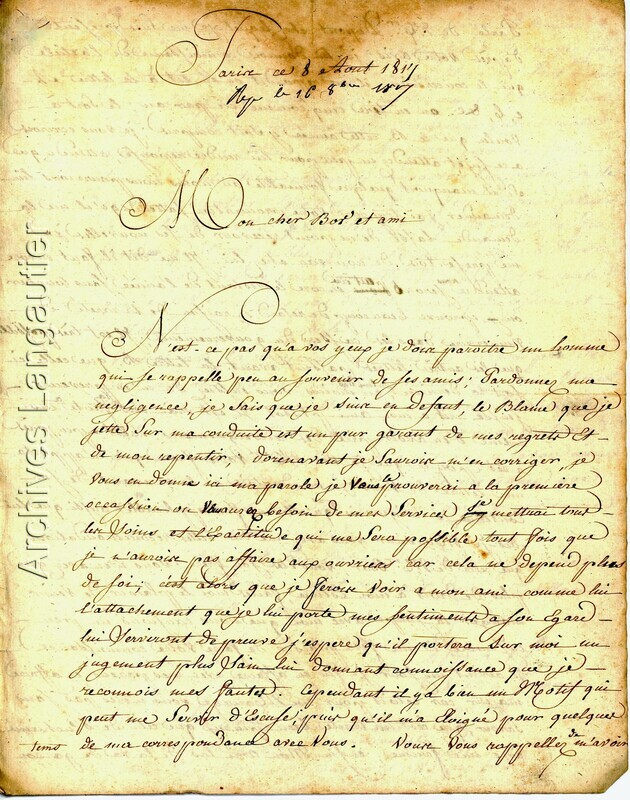 Paris ce 8 Aout 1817
Rep le 16 8bre 1817
Mon cher Bor et ami
N'est-ce pas qu'a vos yeux je dois paroitre un homme
qui se rappelle peu au souvenir de ses amis; Pardonnez ma
negligence, je sais que je suis en defaut, le Blame que je
jette sur ma conduite est un pur garant de mes regrets Et
de mon repentir, dorenavant je saurois m'en corriger, je
vous en donne ici ma parole je vous le prouverai a la première
occassion ou vous aurez besoin de mes Services j'y mettrai tout
les Soins et l'Exactitude qui me Sera possible tout fois que
je n'aurois pas affaire aux ouvriers car cela ne depend plus
de soi; c'est alors que je ferois voir a mon ami comme lui
l'attachement que je lui porte mes Sentiments a son Egard
lui Serviront de preuve j'espere qu'il portera Sur moi un
jugement plus Sain lui donnant connoissance que je
reconnois mes fautes. Cependant il y a bien un Motif qui
peut me Servir d'Excuse, puis qu'il m'a Eloigné pour quelques
tems de ma correspondance avec Vous. Vous Vous rappellez de m'avoir
Archives Langautier